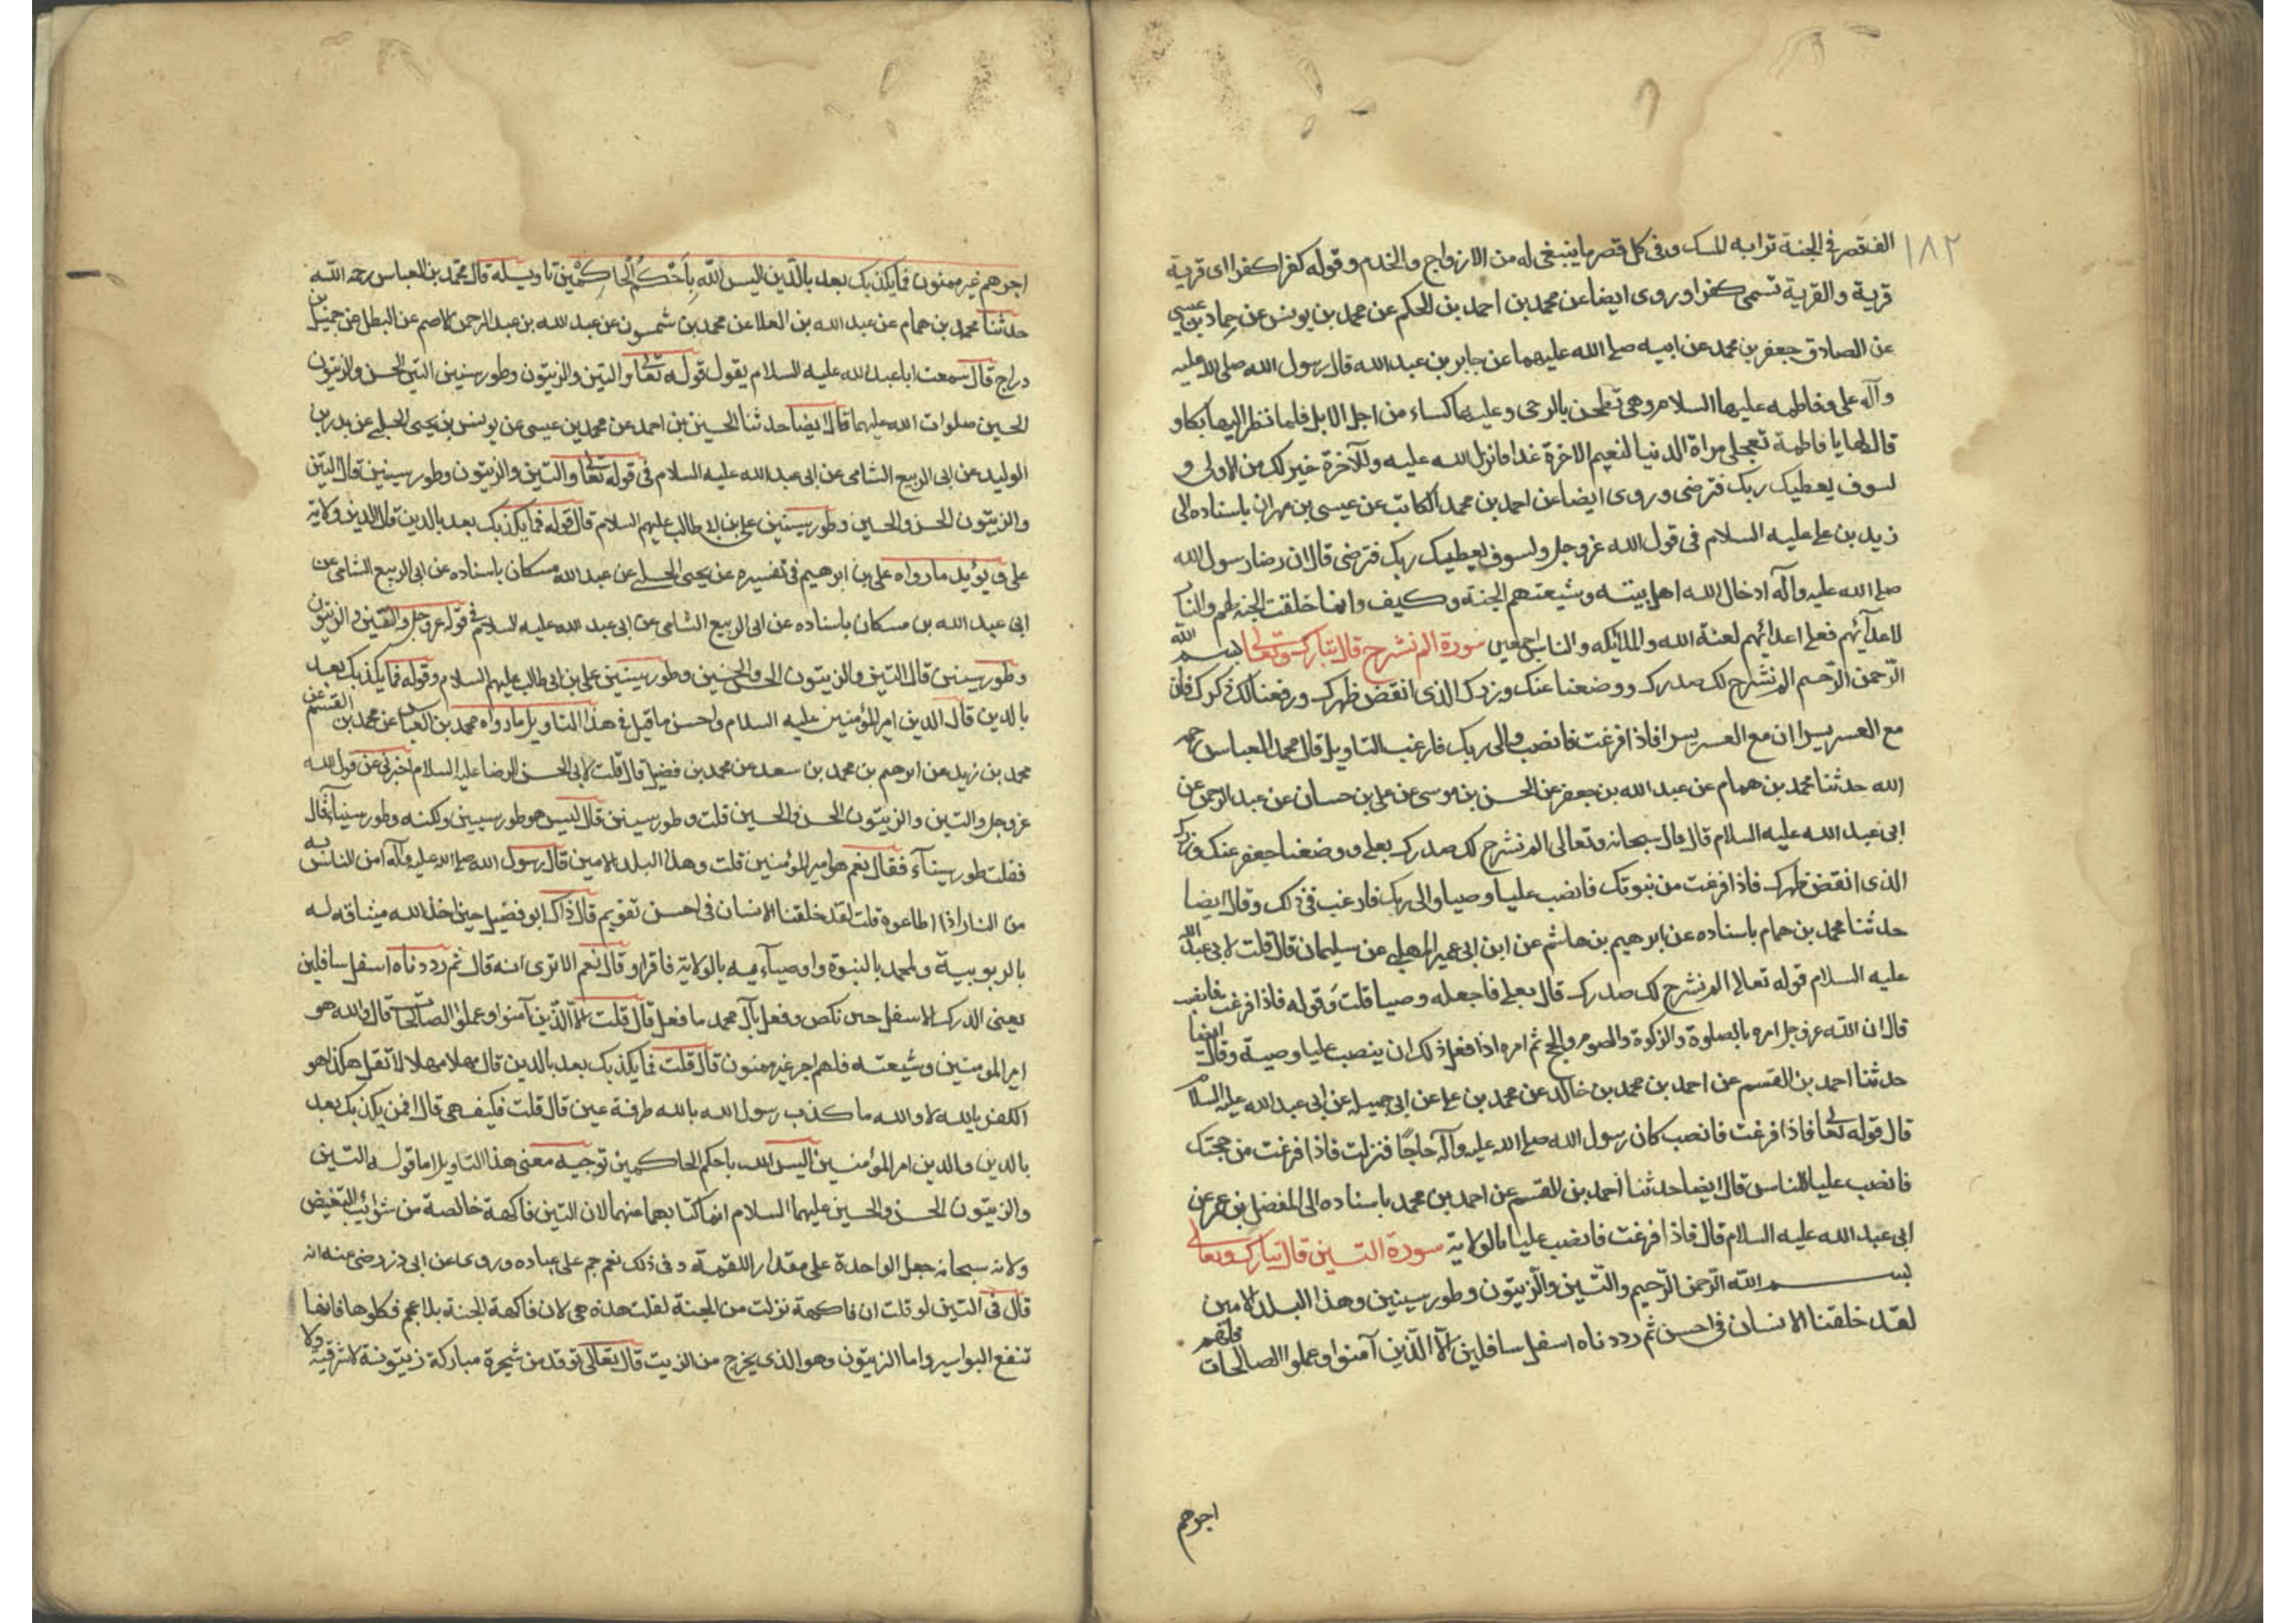 ١٨٢
الف قصر فى الجنة ترابه المسك وفى كل قصر ما ينبغى له من الازواج والخدم وقوله كفرا كفرا اى قرية
قرية والقرية تسمى كفرا وروى ايضا عن محمد بن احمد بن الحكم عن محمد بن يونس عن حماد بن عيسى
عن الصادق جعفر بن محمد عن ابيه صلى الله عليهما عن جابر بن عبد الله قال رسول الله صلى الله عليه
وآله على وفاطمه عليهما السلام وهى تطحن بالرحى وعليها كساء من اجل الابل فلما نظر اليها بكا و
قال لها يا فاطمة تعجلى مراة الدنيا لنعيم الاخرة غدا فانزل الله عليه وللآخرة خير لك من الاولى و
لسوف يعطيك ربك فترضى وروى ايضا عن احمد بن محمد الكاتب عن عيسى بن مهران باسناده الى
زيد بن على عليه السلام فى قول الله عز وجل ولسوف يعطيك ربك فترضى قال ان رضا رسول الله
صلى الله عليه وآله ادخال الله اهل بيته وشيعتهم الجنة وكيف وانما خلقت الجنة لهم والنار
لاعدآئهم فعلى اعدائهم لعنة الله والملائكه والناس اجمعين سورة الم نشرح قال تبارك وتعالى بسم الله
الرّحمن الرّحيم الم نشرح لك صدرك ووضعنا عنك وزرك الذى انقض ظهرك ورفعنا لك ذكرك فان
مع العسر يسرا ان مع العسر يسرا فاذا فرغت فانصب والى ربك فارغب التاويل قال محمد العباس رحمه
الله حدثنا محمد بن همام عن عبد الله بن جعفر عن الحسن بن موسى عن على بن حسان عن عبد الرحمن عن
ابى عبد الله عليه السلام قال قال سبحانه وتعالى الم نشرح لك صدرك بعلى ووضعنا جعفر عنك وزرك
الذى انقض ظهرك فاذا فرغت من نبوتك فانصب عليا وصيا والى ربك فارغب فى ذلك وقال ايضا
حدثنا محمد بن همام باسناده عن ابرهيم بن هاشم عن ابن ابى عمير المهلبى عن سليمان قال قلت لابى عبد الله
عليه السلام قوله تعالى الم نشرح لك صدرك قال بعلى فاجعله وصيا قلت وقوله فاذا فرغت فانصب
قال ان الله عز وجل امره بالصلوة والزكوة والصوم والحج ثم امره اذا فعل ذلك ان ينصب عليا وصيه وقال ايضا
حدثنا احمد بن القسم عن احمد بن محمد بن خالد عن محمد بن على عن ابى جميله عن ابى عبد الله عليه السلام
قال قوله تعالى فاذا فرغت فانصب كان رسول الله صلى الله عليه وآله حاجّا فنزلت فاذا فرغت من حجتك
فانصب عليا للناس قال ايضا حدثنا احمد بن القسم عن احمد بن محمد باسناده الى المفضل بن عمر عن
ابى عبد الله عليه السلام قال فاذا فرغت فانصب عليا بالولاية سورة التين قال تبارك وتعالى
بسم الله الرّحمن الرّحيم والتّين والزّيتون وطور سينين وهذا البلد الامين
لقد خلقنا الانسان فى احسن ثم رددناه اسفل سافلين الّا الّذين آمنوا وعملوا الصالحات فلهم
اجرهم
اجرهم غير ممنون فما يكذبك بعد بالدّين اليس اللّه بِاَحْكَمِ الْحَاكِمْينَ تاويله قال محمّد بن العباس رحمه اللّه
حدثنا محمد بن همام عن عبد الله بن العلا عن محمد بن شمسون عن عبد الله بن عبد الرحمن الاصم عن البطل عن جميل بن
دراج قال سمعت ابا عبد الله عليه السلام يقول قوله تعالى والتين والزيتون وطور سينين التين الحسن والزيتون
الحسين صلوات الله عليهما قال ايضا حدثنا الحسين بن احمد عن محمد بن عيسى عن يونس بن يحيى الحلبى عن بدر بن
الوليد عن ابى الربيع الشامى عن ابى عبد الله عليه السلام فى قوله تعالى والتين والزيتون وطور سينين قال التين
والزيتون الحسن والحسين وطور سينين على بن ابى طالب عليهم السلام قال قوله فما يكذبك بعد بالدين قال الدين ولاية
على ويؤيد ما رواه على بن ابرهيم فى تفسيره عن يحيى الحلبى عن عبد الله مسكان باسناده عن ابى الربيع الشامى عن
ابى عبد الله بن مسكان باسناده عن ابى الربيع الشامى عن ابى عبد الله عليه السلام فى قوله عز وجل والتين والزيتون
وطور سينين قال التين والزيتون الحسن والحسين وطور سينين على بن ابى طالب عليهم السلام وقوله فما يكذبك بعد
بالدين قال الدين امير المؤمنين عليه السلام واحسن ما قيل فى هذا التاويل ما رواه محمد بن العباس عن محمد بن القسم عن
محمد بن زيد عن ابرهيم بن محمد بن سعد عن محمد بن فضيل قال قلت لابى الحسن الرضا عليه السلام اخبرنى عن قول الله
عز وجل والتين والزيتون الحسن والحسين قلت وطور سينين قال ليس هو طور سينين ولكنه وطور سينآ قال
فقلت طور سينآء فقال نعم هو امير المؤمنين قلت وهذا البلد الامين قال رسول الله صلى الله عليه وآله امن الناس به
من النار اذا اطاعوه قلت لقد خلقنا الانسان فى احسن تقويم قال ذاك ابو فضيل حين اخذ الله ميثاقه له
بالربوبية ولمحمد بالنبوة واوصيآءيه بالولاية فاقرار وقال نعم الا ترى انه قال ثم رددناه اسفل سافلين
يعنى الدرك الاسفل حين نكص وفعل بآل محمد ما فعل قال قلت الّا الّذين آمنوا وعملوا الصالحات قال والله هو
امير المومنين وشيعته فلهم اجر غير ممنون قال قلت فما يكذبك بعد بالدين قال مهلا مهلا لا تقل هكذا هو
الكفر بالله لا والله ما كذب رسول الله بالله طرفة عين قال قلت فكيف هى قال افمن يكذبك بعد
بالدين والدين امير المؤمنين اليس الله باحكم الحاكمين توجيه معنى هذا التاويل اما قوله التين
والزيتون الحسن والحسين عليهما السلام انما كنا بهما عنهما لان التين فاكهة خالصة من شوآئب التنغيص
ولانه سبحانه جعل الواحدة على مقدار اللقمة وفى ذلك نعم جم على عباده وروى عن ابى ذر رضى عنه انه
قال فى التين لو قلت ان فاكهة نزلت من الجنة لقلت هذه هى لان فاكهة الجنة بلا عجم فكلوها فانها
تنفع البواسير واما الزيتون وهو الذى يخرج من الزيت قال تعالى توقد من شجرة مباركة زيتونة لا شرقية ولا